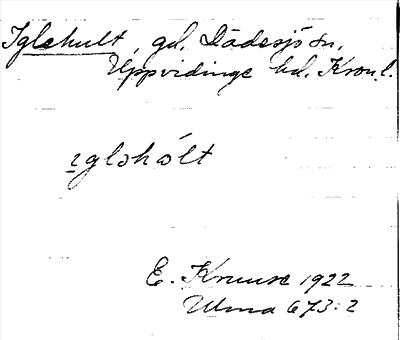 Iglehult, gd. Dädesjö sn,
Uppvidinge hd. Kron.l.
ɪgləhɔ́lt
E. Kruuse 1922
Ulma 673:2